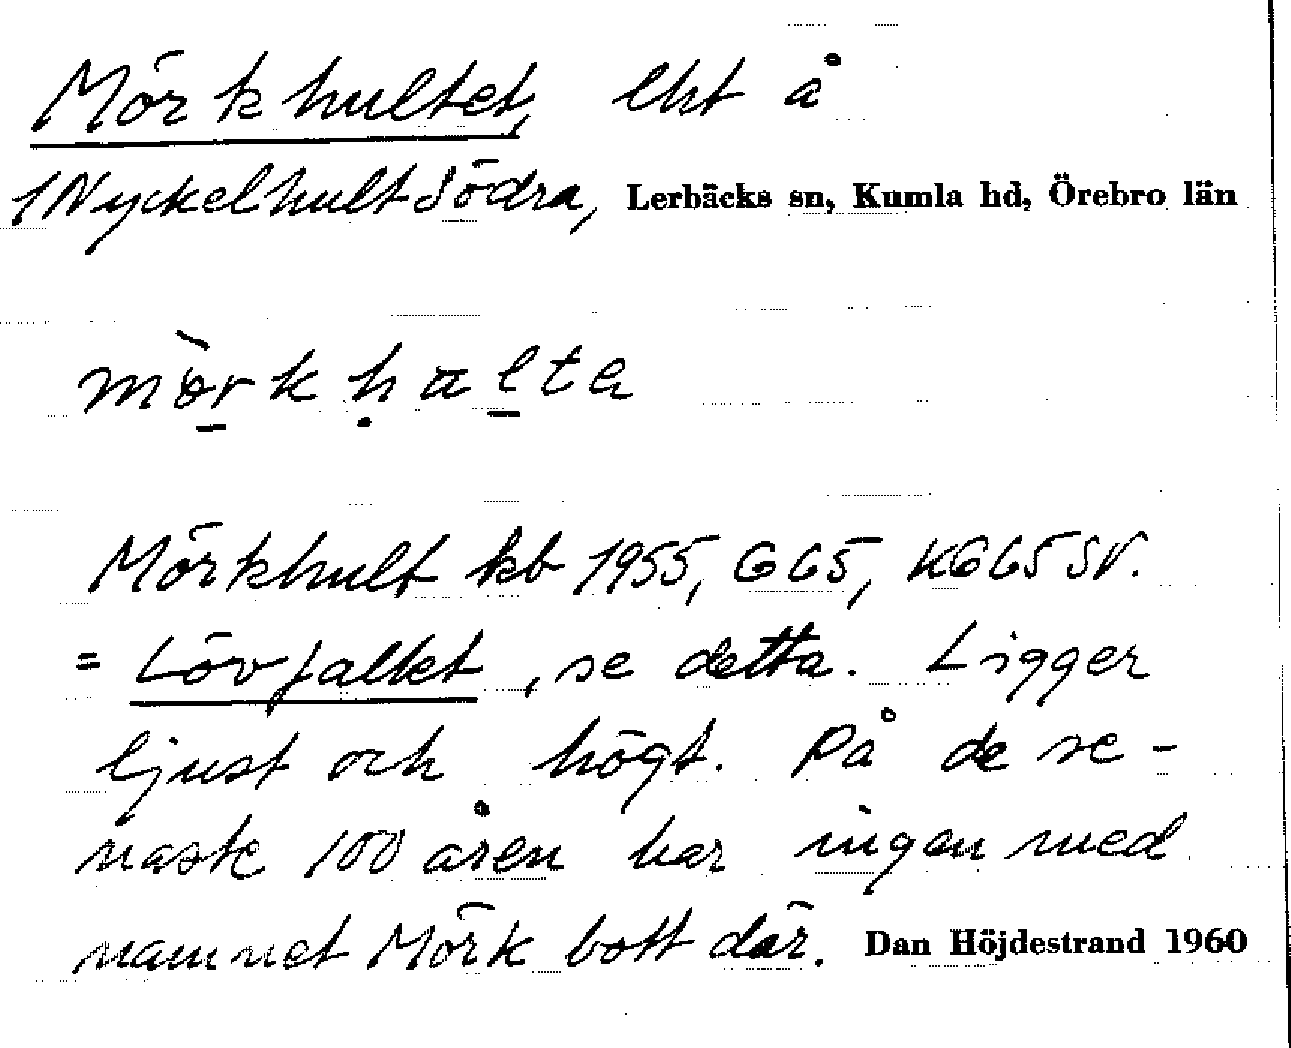 Mörkhultet, lht å
1 Nyckelhult Södra, Lerbäcks sn, Kumla hd, Örebro län
mòrkhalta
Mörkhult kb 1955, G65, KG65SV.
= Lövfallet, se detta. Ligger
ljust och högt. På de se-
naste 100 åren har ingen med
namnet Mörk bott där. Dan Höjdestrand 1960